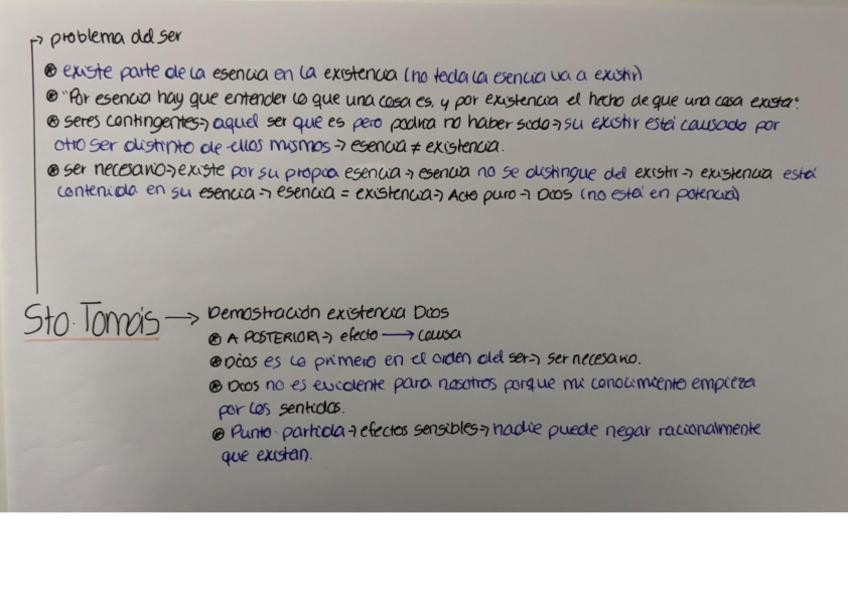 → problema del ser
⊛ existe parte de la esencia en la existencia (no toda la esencia va a existir)
⊛ "Por esencia hay que entender lo que una cosa es, y por existencia el hecho de que una cosa exista".
⊛ seres contingentes → aquel ser que es pero podría no haber sido → su existir está causado por
otro ser distinto de ellos mismos → esencia ≠ existencia.
⊛ ser necesario → existe por su propia esencia → esencia no se distingue del existir → existencia está
contenida en su esencia → esencia = existencia → Acto puro → Dios (no está en potencia)
Sto. Tomás → Demostración existencia Dios
⊛ A POSTERIORI → efecto → causa
⊛ Dios es lo primero en el orden del ser → ser necesario.
⊛ Dios no es evidente para nosotros porque mi conocimiento empieza
por los sentidos.
⊛ Punto partida → efectos sensibles → nadie puede negar racionalmente
que existan.